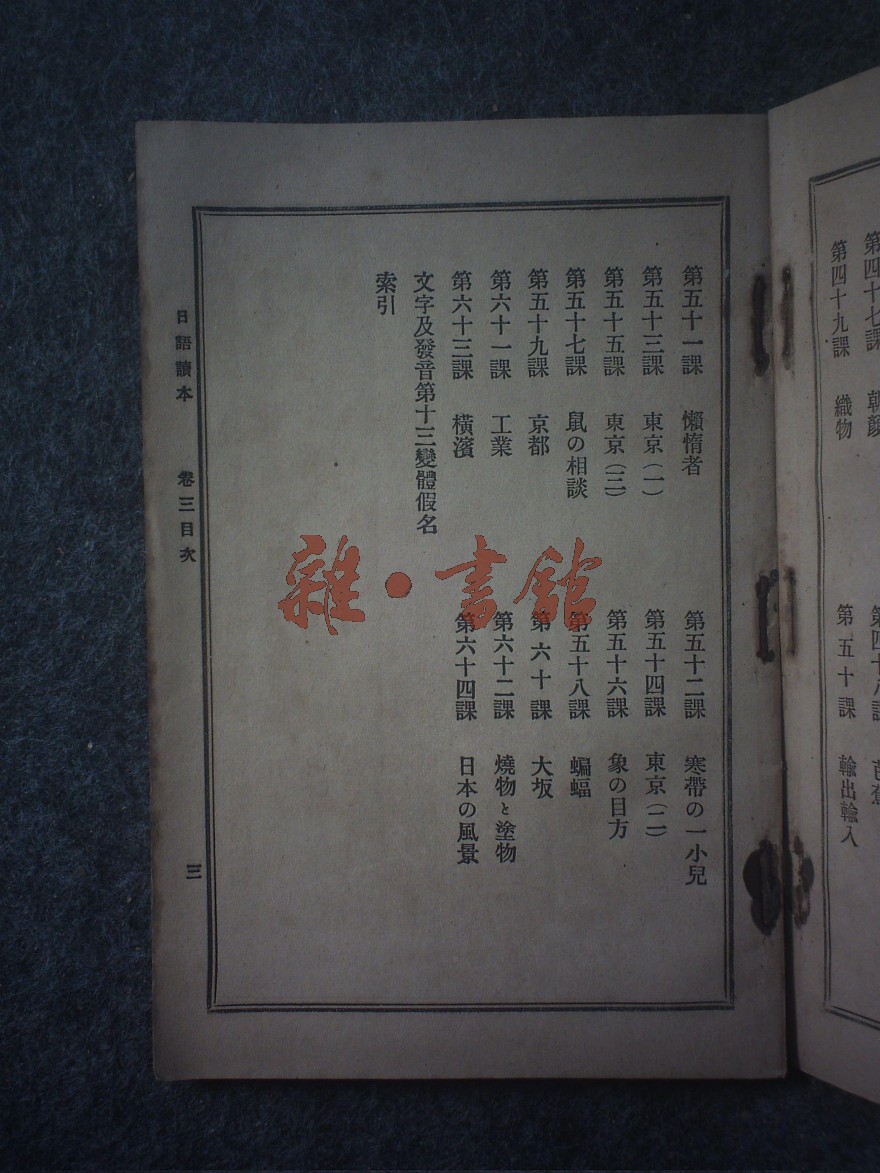 第四十七課　朝顔
第四十八課　芭蕉
第四十九課　織物
第五十課　輸出輸入
第五十一課　懶惰者
第五十二課　寒帶の一小兒
第五十三課　東京(一)
第五十四課　東京(二)
第五十五課　東京(三)
第五十六課　象の目方
第五十七課　鼠の相談
第五十八課　蝙蝠
第五十九課　京都
第六十課　大坂
第六十一課　工業
第六十二課　燒物と塗物
第六十三課　橫濱
第六十四課　日本の風景
文字及發音第十三變體假名
索引
日語讀本　卷三目次　三
雜·書館